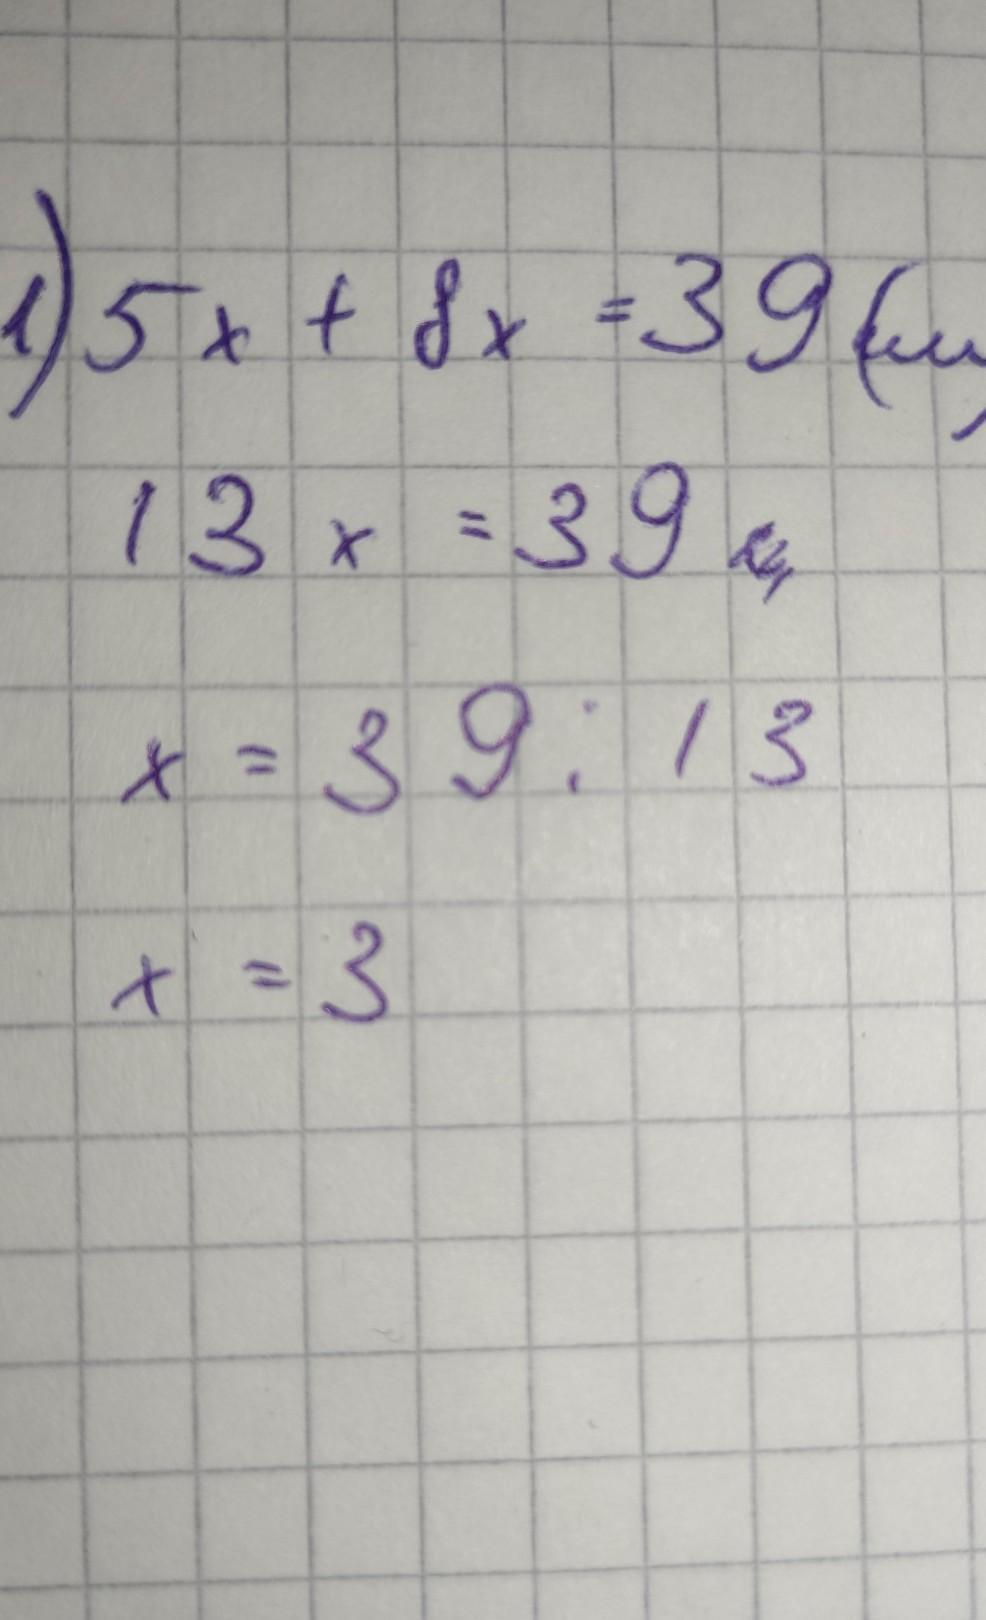 1) 5x + 8x = 39 (
13x = 39
x = 39 : 13
x = 3